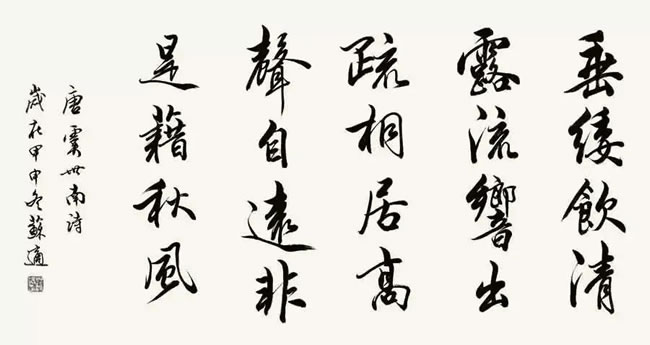 垂緌飲清
露流響出
疏桐居高
聲自遠非
是藉秋風
唐虞世南詩
歲在甲申冬蘇適